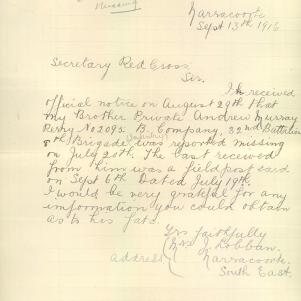 Missing
Narracoorte
Sept 13th 1916
Secretary Red Cross
Sir.
I received
official notice on August 29th that
my Brother Private Andrew Murray
Perry No 2095 B. Company, 32nd Battalion
8th Brigade Infantry was reported missing
on July 20th. The last received
from him was a field post card
on Sept 6th Dated July 19th.
I would be very grateful for any
imformation you could obtain
as to his fate.
Yrs faithfully
Mrs J. Dobban.
address Narracoorte
South East.